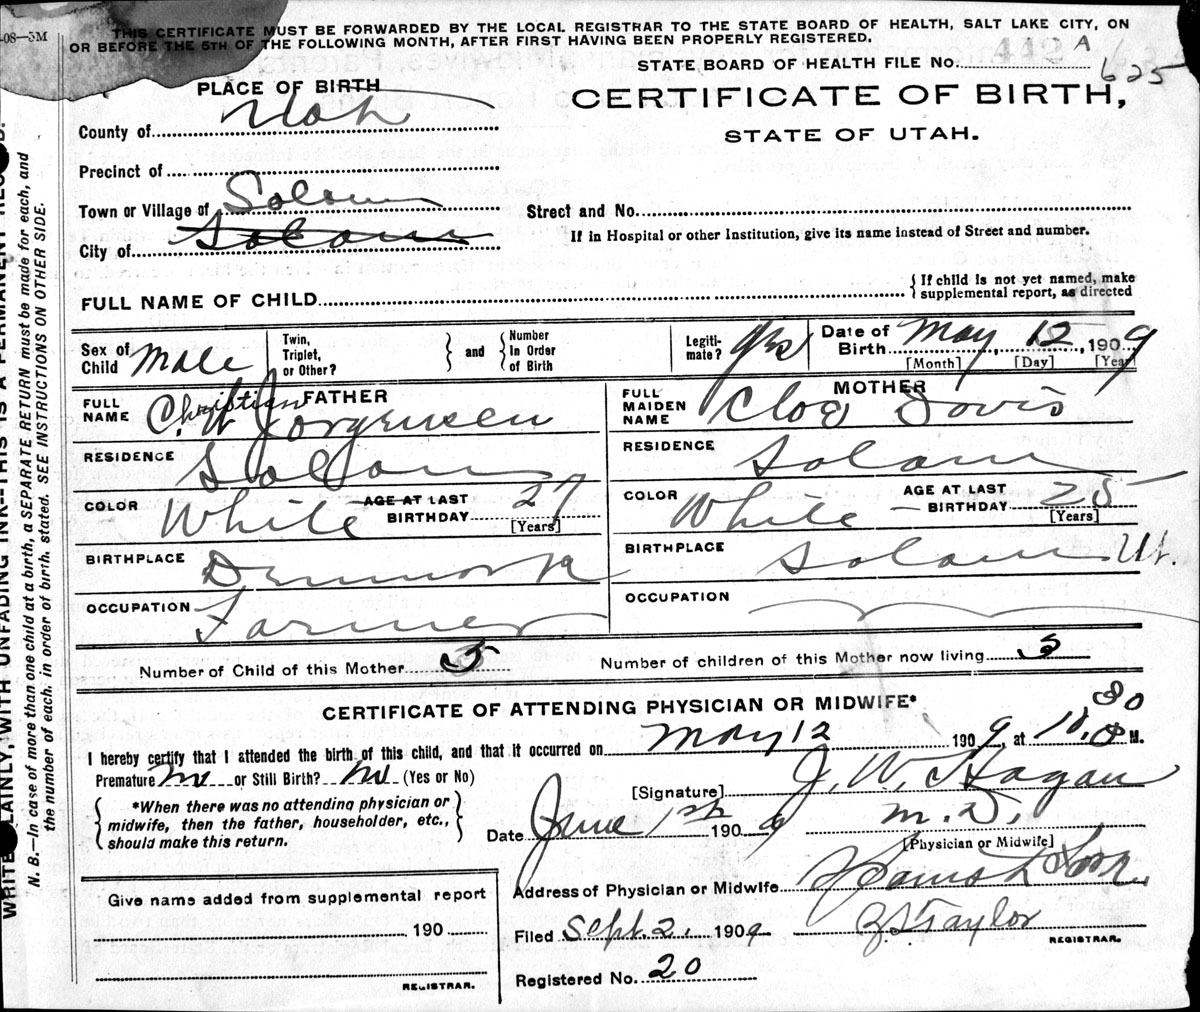 -08—5M
THIS CERTIFICATE MUST BE FORWARDED BY THE LOCAL REGISTRAR TO THE STATE BOARD OF HEALTH, SALT LAKE CITY, ON
OR BEFORE THE 5TH OF THE FOLLOWING MONTH, AFTER FIRST HAVING BEEN PROPERLY REGISTERED.
STATE BOARD OF HEALTH FILE No. 112 A
625
PLACE OF BIRTH
CERTIFICATE OF BIRTH,
STATE OF UTAH.
County of Utah
Precinct of
Town or Village of Salem
Street and No.
City of Salem
If in Hospital or other Institution, give its name instead of Street and number.
FULL NAME OF CHILD
{ If child is not yet named, make
supplemental report, as directed
Sex of Child Male
Twin, Triplet, or Other?
} and {
Number In Order of Birth
Legiti-mate? yes
Date of Birth May 12, 1909
[Month] [Day] [Year]
FATHER
FULL NAME Christian
C. W. Jorgensen
RESIDENCE Salem
COLOR White
AGE AT LAST BIRTHDAY 27
[Years]
BIRTHPLACE Denmark
OCCUPATION Farmer
MOTHER
FULL MAIDEN NAME Cloa Davis
RESIDENCE Salem
COLOR White
AGE AT LAST BIRTHDAY 25
[Years]
BIRTHPLACE Salem Ut.
OCCUPATION
Number of Child of this Mother
Number of children of this Mother now living 3
CERTIFICATE OF ATTENDING PHYSICIAN OR MIDWIFE*
I hereby certify that I attended the birth of this child, and that it occurred on May 12 1909, at 10,30 M.
Premature no or Still Birth? no (Yes or No)
{ *When there was no attending physician or
midwife, then the father, householder, etc.,
should make this return. }
[Signature] J. W. Hagan
M. D.
Date June 1st 1909
[Physician or Midwife]
Address of Physician or Midwife Spanish Fork
Give name added from supplemental report
190
REGISTRAR.
Filed Sept. 2, 1909
Z S Taylor
REGISTRAR.
Registered No. 20
WRITE PLAINLY, WITH UNFADING INK—THIS IS A PERMANENT RECORD.
N. B.—In case of more than one child at a birth, a SEPARATE RETURN must be made for each, and
the number of each, in order of birth, stated. SEE INSTRUCTIONS ON OTHER SIDE.